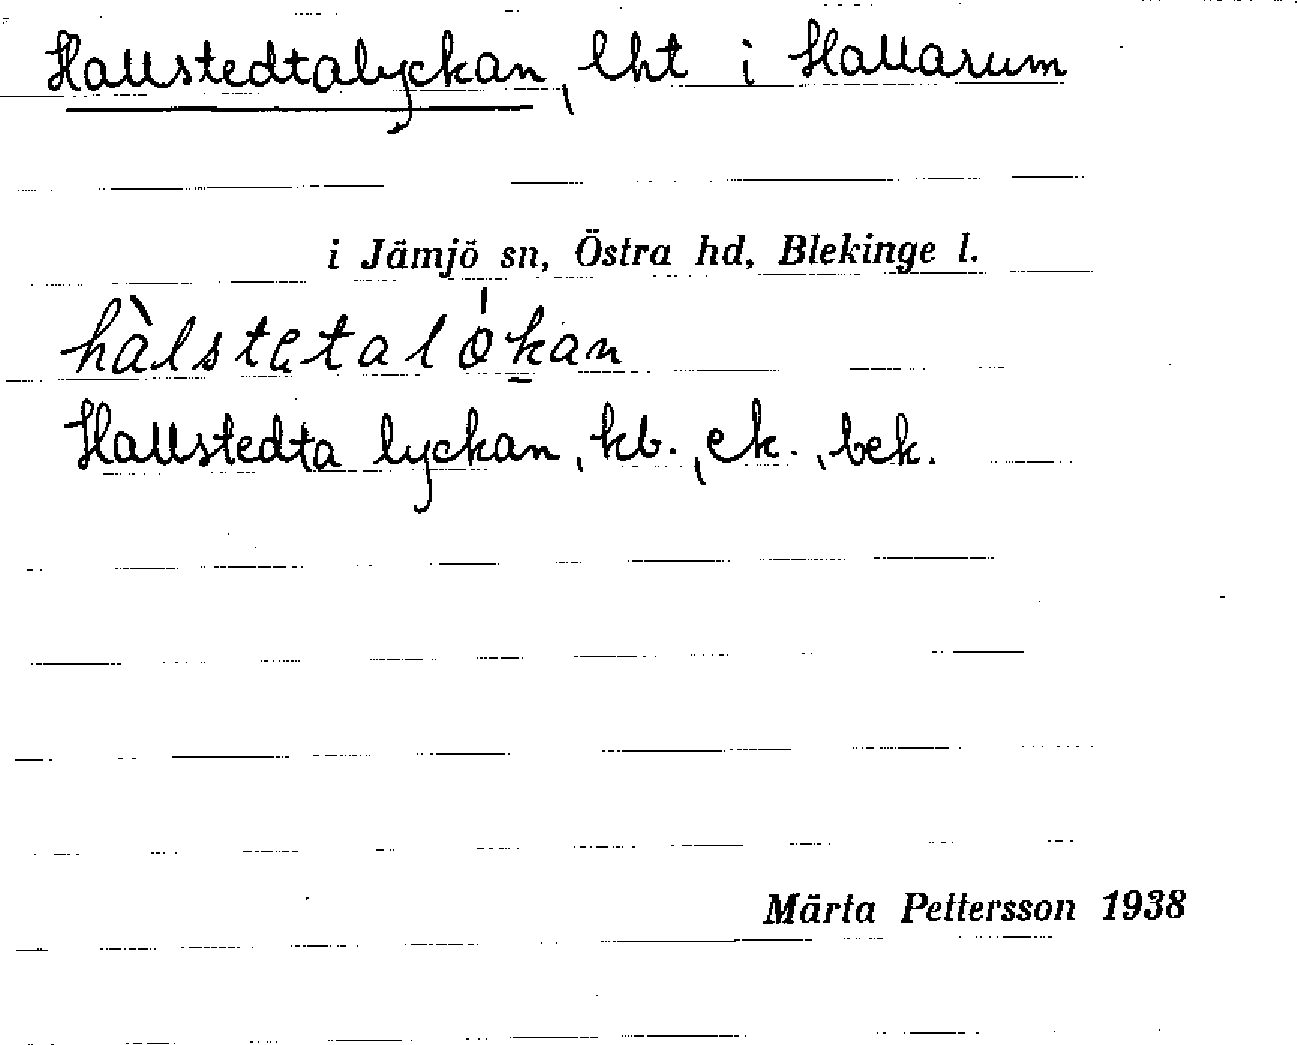 Hallstedtalyckan, lht i Hallarum
i Jämjö sn, Östra hd, Blekinge l.
hàlstetalókan
Hallstedta lyckan, kb., ek., bek.
Märta Pettersson 1938